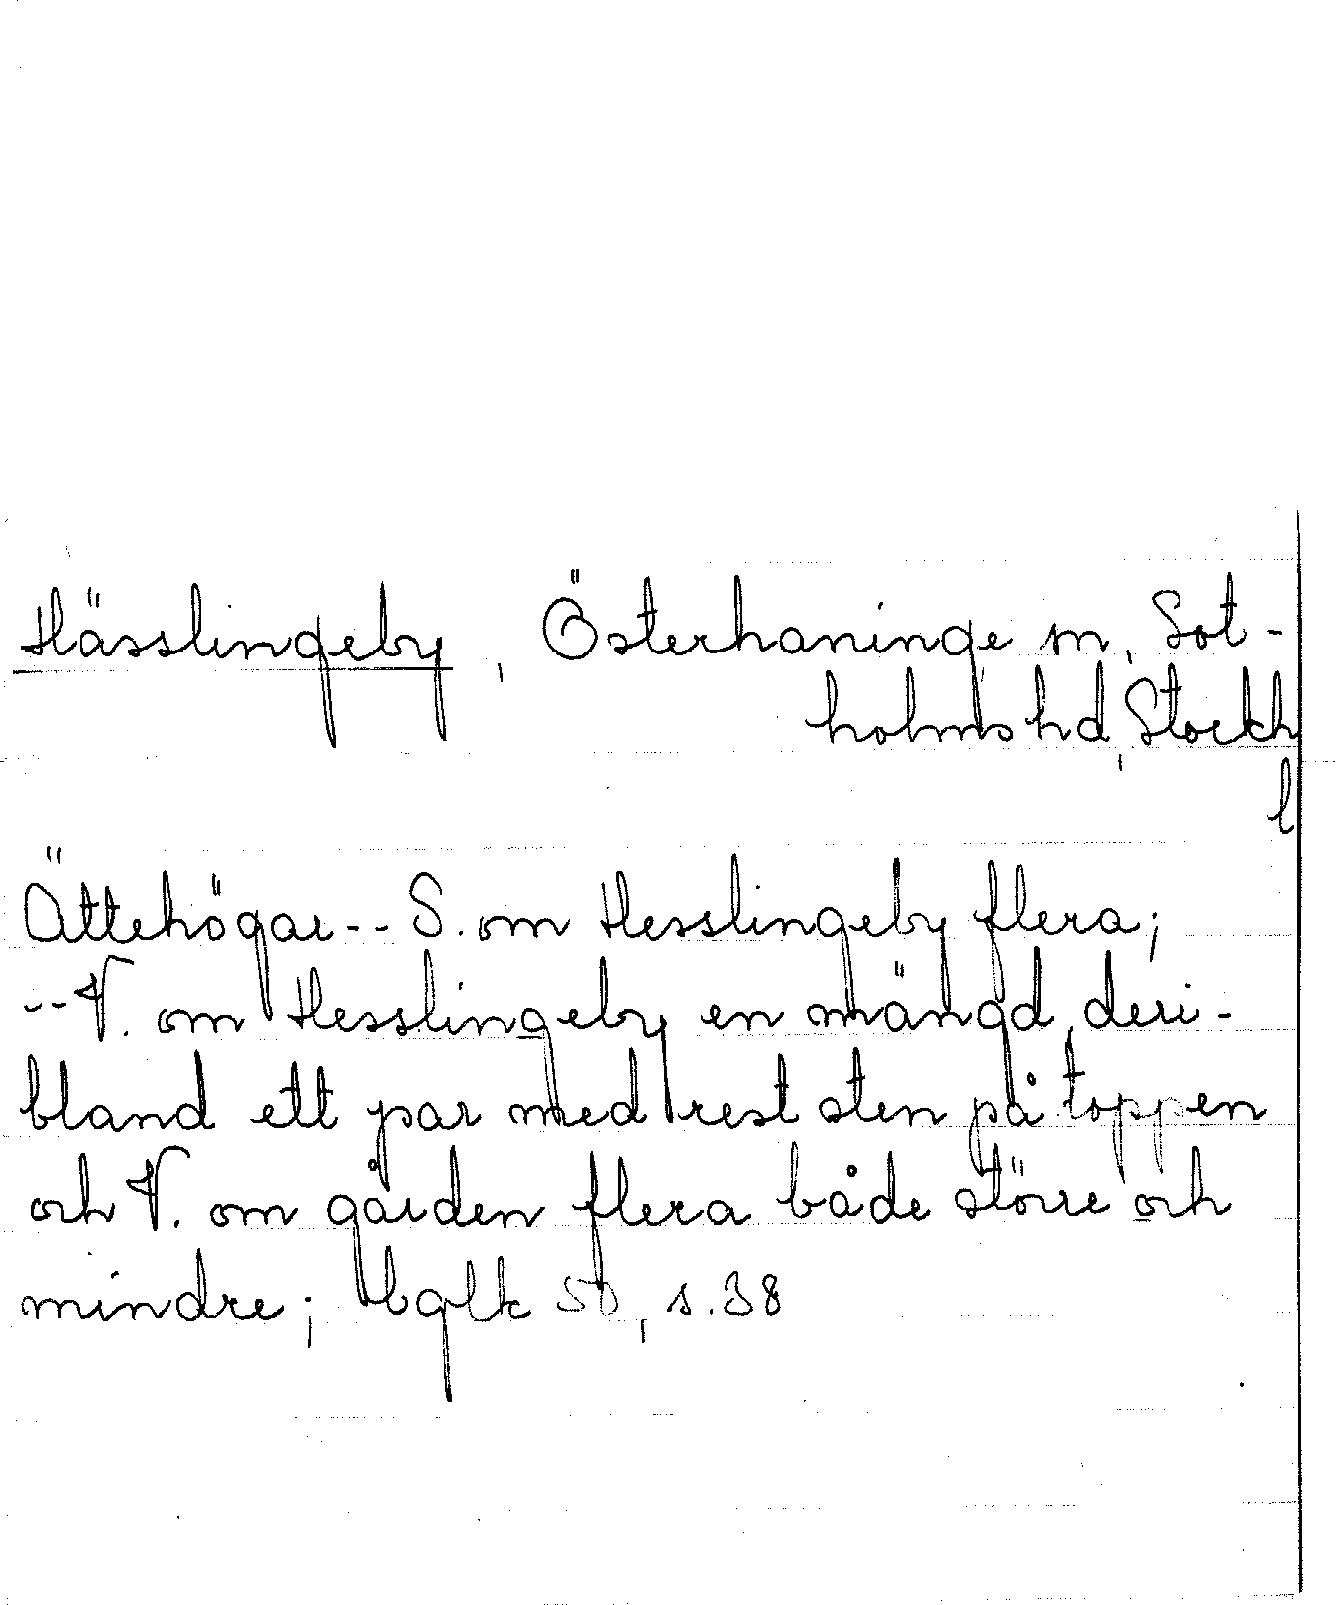 Hässlingeby, Österhaninge sn, Sot-
holms hd, Stockh
l
Ättehögar-- S. om Hesslingeby flera;
--V. om Hesslingeby en mängd, deri-
bland ett par med rest sten på toppen
och V. om gården flera både större och
mindre; Hbglk 50, s.38